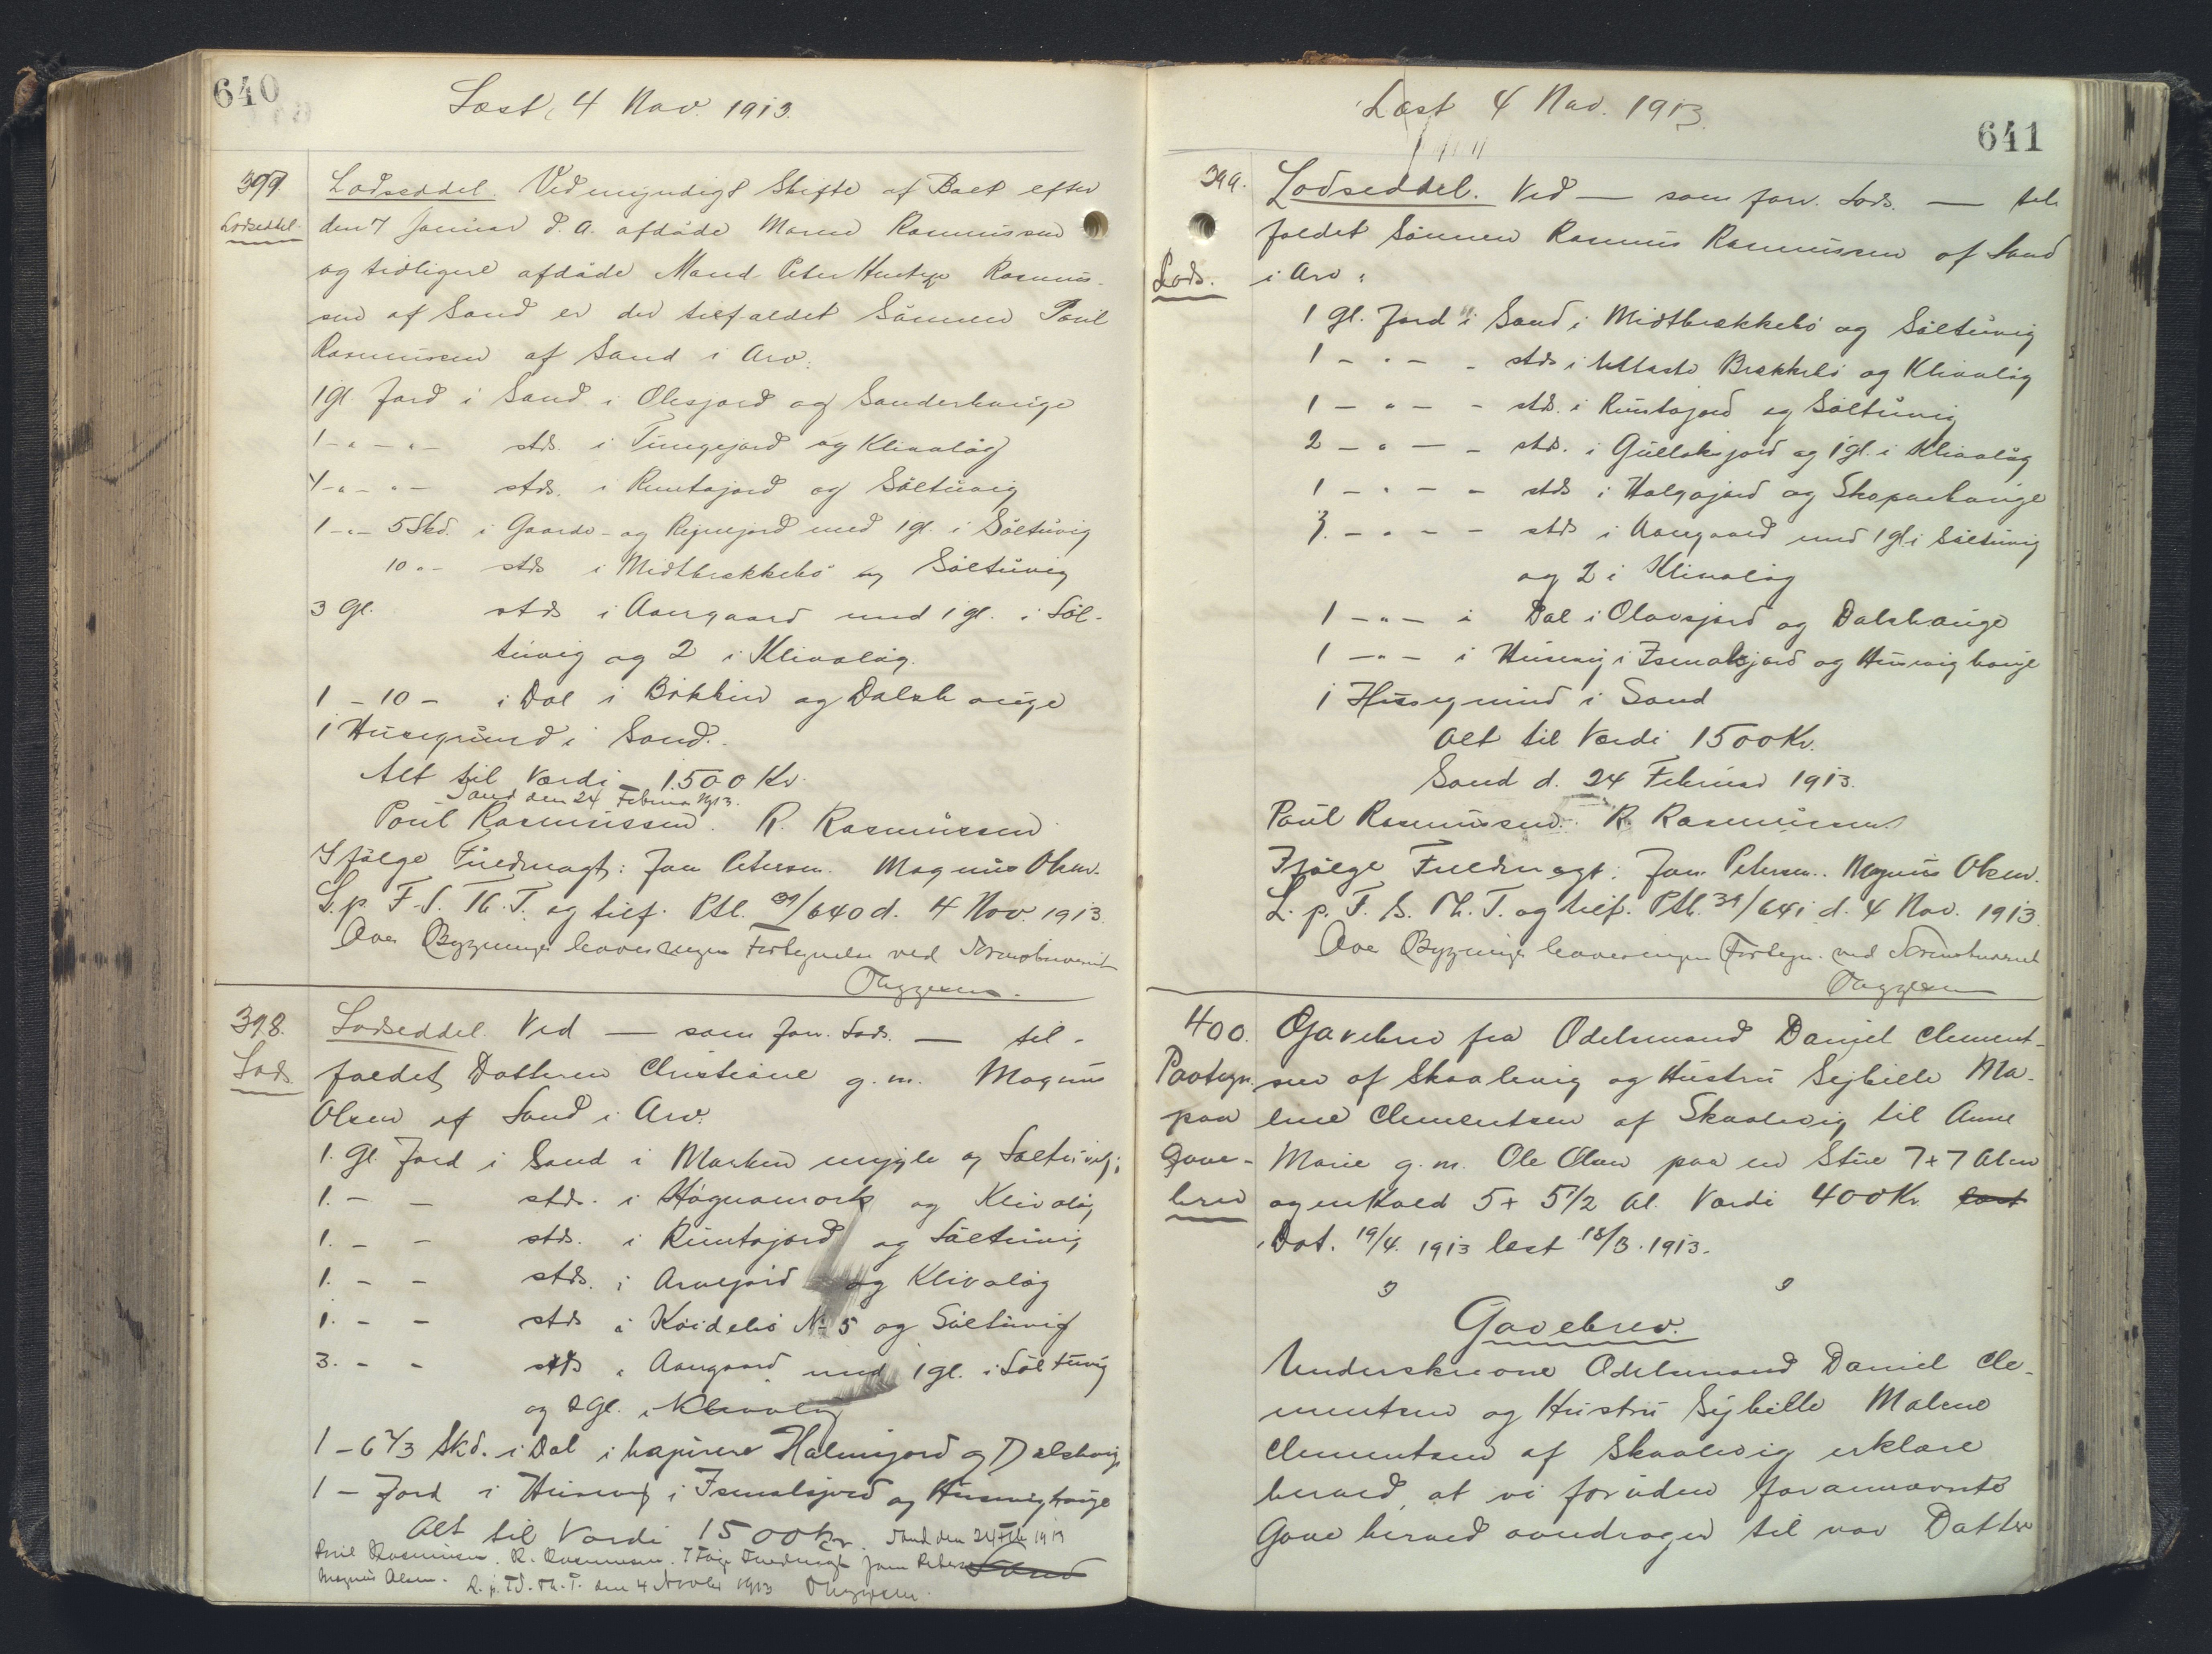 640
Læst, 4 Nov. 1913.
397.
Lodseddel.
Lodseddel. Ved myndigt Skifte af Boet efter
den 7 Januar d. A. afdöde Maren Rasmussen
og tidligere afdöde Mand Peter Rasmus-
sen af Sand er der tilfaldet Sönnen Poul
Rasmussen af Sand i Arv:
1 gl. Jord i Sand i Olesjord og Sanderhauge
1 - " - " - stds. i Tungejord og Klivalág
1 - " - " - stds. i Runtajord og Söltuvig
1 - " - 5 Skd. i Gaarde- og Rejnejord med 1 gl. i Söltuvig
10 " - stds i Midtbrekkebö og Söltuvig
3 Gl. stds i Aargaard med 1 gl. i Söl-
tuvig og 2 i Klivalág.
1 - 10 - i Dal i Bökkin og Dalshauge
1 Husegrund i Sand.
Alt til Værdi 1500 Kr.
Sand den 24 Februar 1913.
Poul Rasmussen. R. Rasmussen
Ifölge Fuldmagt: Joen Petersen. Magnus Olsen.
L. p. F. S. Th. T. og tilf. Ptl. 39/640 d. 4 Nov. 1913.
Ove Bygninger haves ingen Fortegnelse ved Sorenskriveriet
398.
Lods
Lodseddel. Ved — som forr. Lods. — til-
faldet Datteren Christiane g. m. Magnus
Olsen af Sand i Arv:
1. Gl. Jord i Sand i Marken og Söltuvig;
1. - - stds. i Högnamork og Klivalág
1. - - stds. i Runtajord og Söltuvig
1. - - stds. i Arvejord og Klivalág
1. - - stds i Köidebö No 5 og Söltuvig
3. - - stds i Aargaard med 1 gl. i Söltuvig
og 2 Gl. i Klivalág
1 - 6 2/3 Skd. i Dal i Halmjord og Dalshauge
1 - Jord i Husevig i Ismalsjord og Husevighauge
Alt til Værdi 1500 kr. Sand den 24 Feb. 1913
Poul Rasmussen. R. Rasmussen. Ifölge Fuldmagt Joen Petersen Sand
Magnus Olsen. L. p. F. S. Th. T. den 4 Novbr 1913
Læst 4 Nov. 1913.
641
399.
Lods.
Lodseddel. Ved — som forr. Lods. — til-
faldet Sönnen Rasmus Rasmussen af Sand
i Arv:
1 gl. Jord i Sand i Midtbrekkebö og Söltuvig
1 - " - - stds i Brekkebö og Klivalág
1 - " - - stds. i Runtajord og Söltuvig
2 - " - - stds. i Gullaksjord og 1 gl. i Klivalág
1 - " - - stds i Holgajord og Skoparhauge
3. - " - - stds i Aargaard med 1 gl. i Söltuvig
og 2 i Klivalág
1 - " - i Dal i Olavsjord og Dalshauge
1 - " - i Husevig i Ismalsjord og Husevighauge
1 Husegrund i Sand
Alt til Værdi 1500 Kr.
Sand d. 24 Februar 1913.
Poul Rasmussen. R. Rasmussen.
Ifölge Fuldmagt: Joen Petersen. Magnus Olsen.
L. p. F. S. Th. T. og tilf. Ptl. 39/641 d. 4 Nov. 1913.
Ove Bygninger haves ingen Fortegn. ved Sorenskriveriet
400.
Paategn.
paa
Gave-
brev
Gavebrev fra Odelsmand Daniel Clement-
sen af Skaalevig og Hustru Sejbille Ma-
lene Clementsen af Skaalevig til Anne
Marie g. m. Ole Olsen paa en Stue 7 x 7 Alen
og en Kold 5 x 5 1/2 Al. Værdi 400 Kr. læst
Dat. 19/4. 1913 læst 18/3. 1913.
Gavebrev.
Underskrevne Odelsmand Daniel Cle-
mentsen og Hustru Sejbille Malene
Clementsen af Skaalevig erklære
herved, at vi foruden forannævnte
Gave herved overdrager til vor Datter